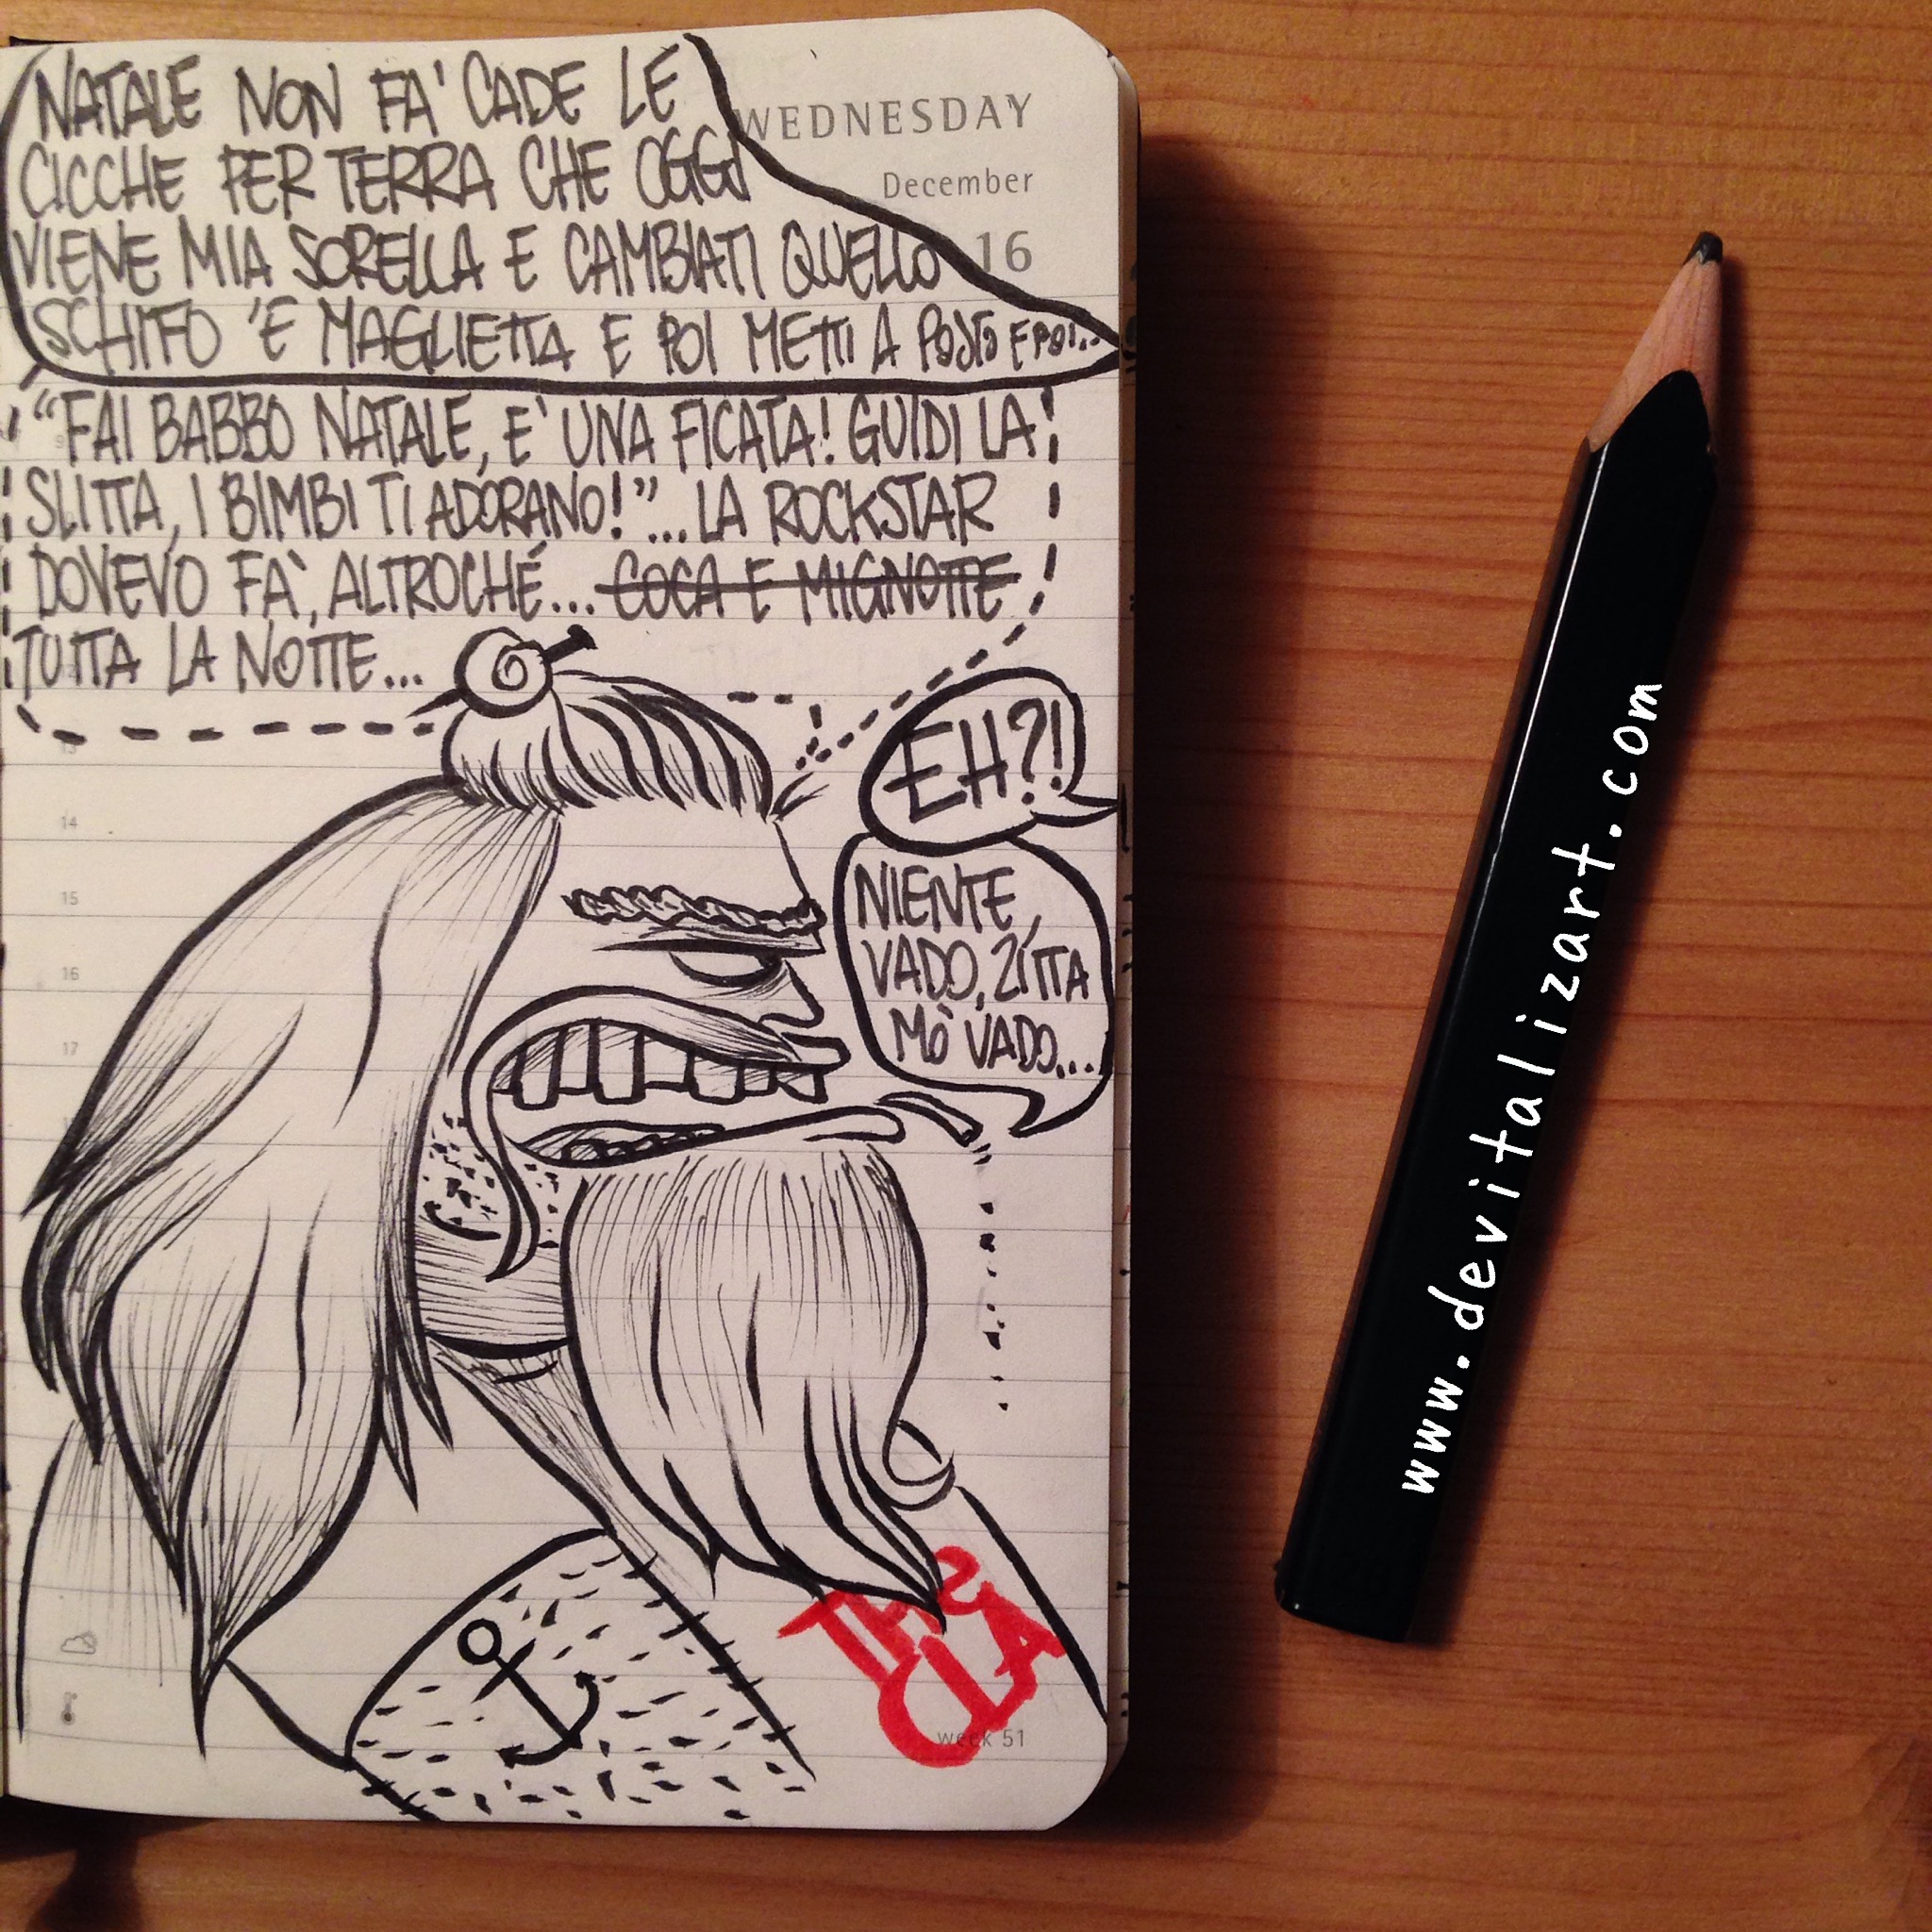 NATALE NON FA' CADE LE
CICCHE PER TERRA CHE OGGI
VIENE MIA SORELLA E CAMBIATI QUELLO
SCHIFO 'E MAGLIETTA E POI METTI A POSTO E POI...
WEDNESDAY
December
16
"FAI BABBO NATALE, E' UNA FICATA! GUIDI LA
SLITTA, I BIMBI TI ADORANO!"... LA ROCKSTAR
DOVEVO FA', ALTROCHÉ... COCA E MIGNOTTE
TUTTA LA NOTTE...
EH?!
NIENTE,
VADO, ZITTA
MÒ VADO...
14
15
16
17
THE
CLA
week 51
www.devitalizart.com